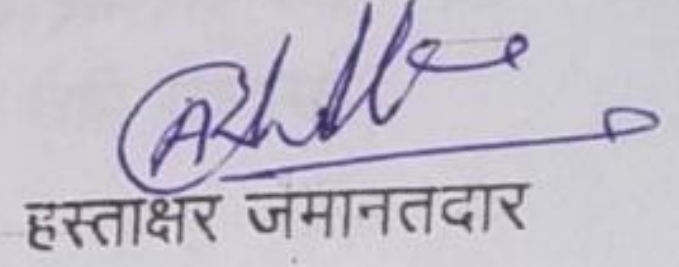 हस्ताक्षर जमानतदार